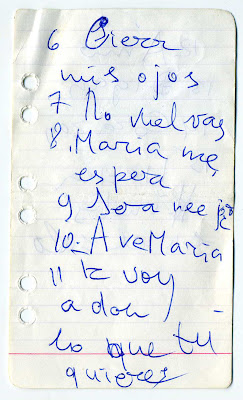 6 Cierra
mis ojos
7 No
8. Maria me
espera
9
10.- AveMaria
11 te voy
a dar
lo que tu
quieres